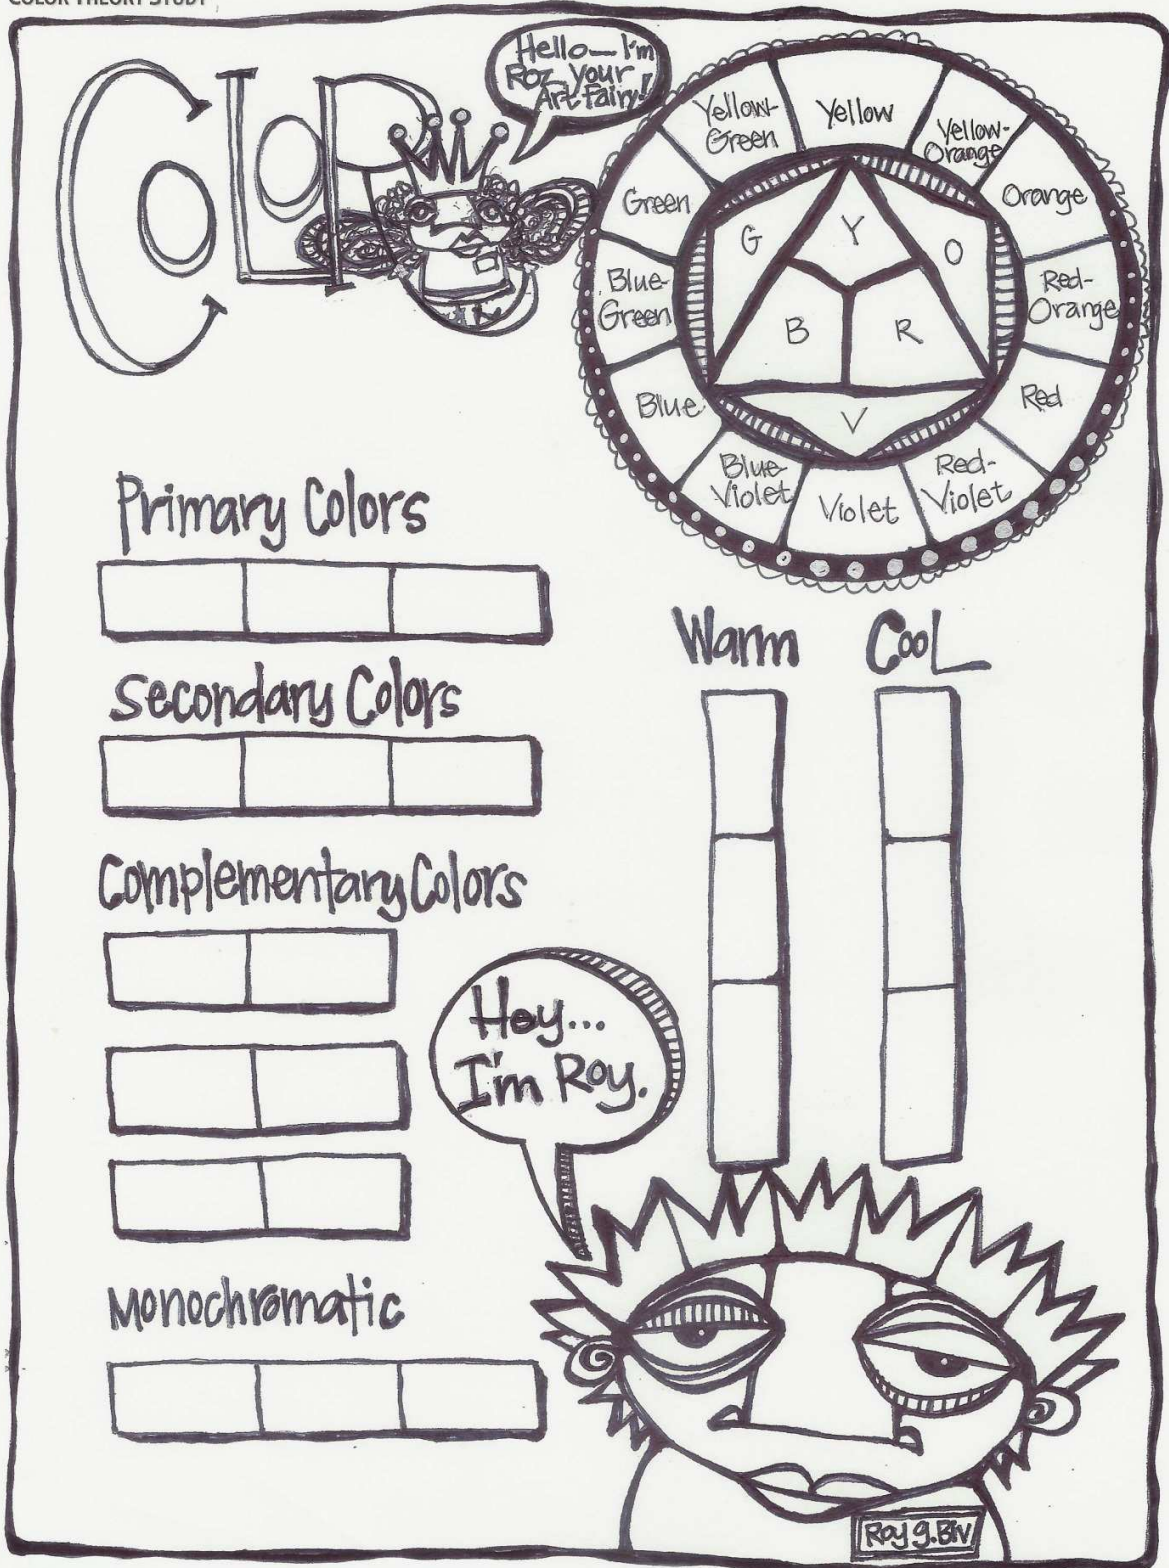 COLOR THEORY STUDY
COLOR
Hello—I'm
Roz your
Art Fairy!
Yellow-
Green
Yellow
Yellow-
Orange
Green
Orange
Blue-
Green
Red-
Orange
Blue
Red
Blue-
Violet
Violet
Red-
Violet
G
Y
O
B
R
V
Primary Colors
Secondary Colors
Complementary Colors
Monochromatic
Warm
Cool
Hey...
I'm Roy.
Roy g. Biv